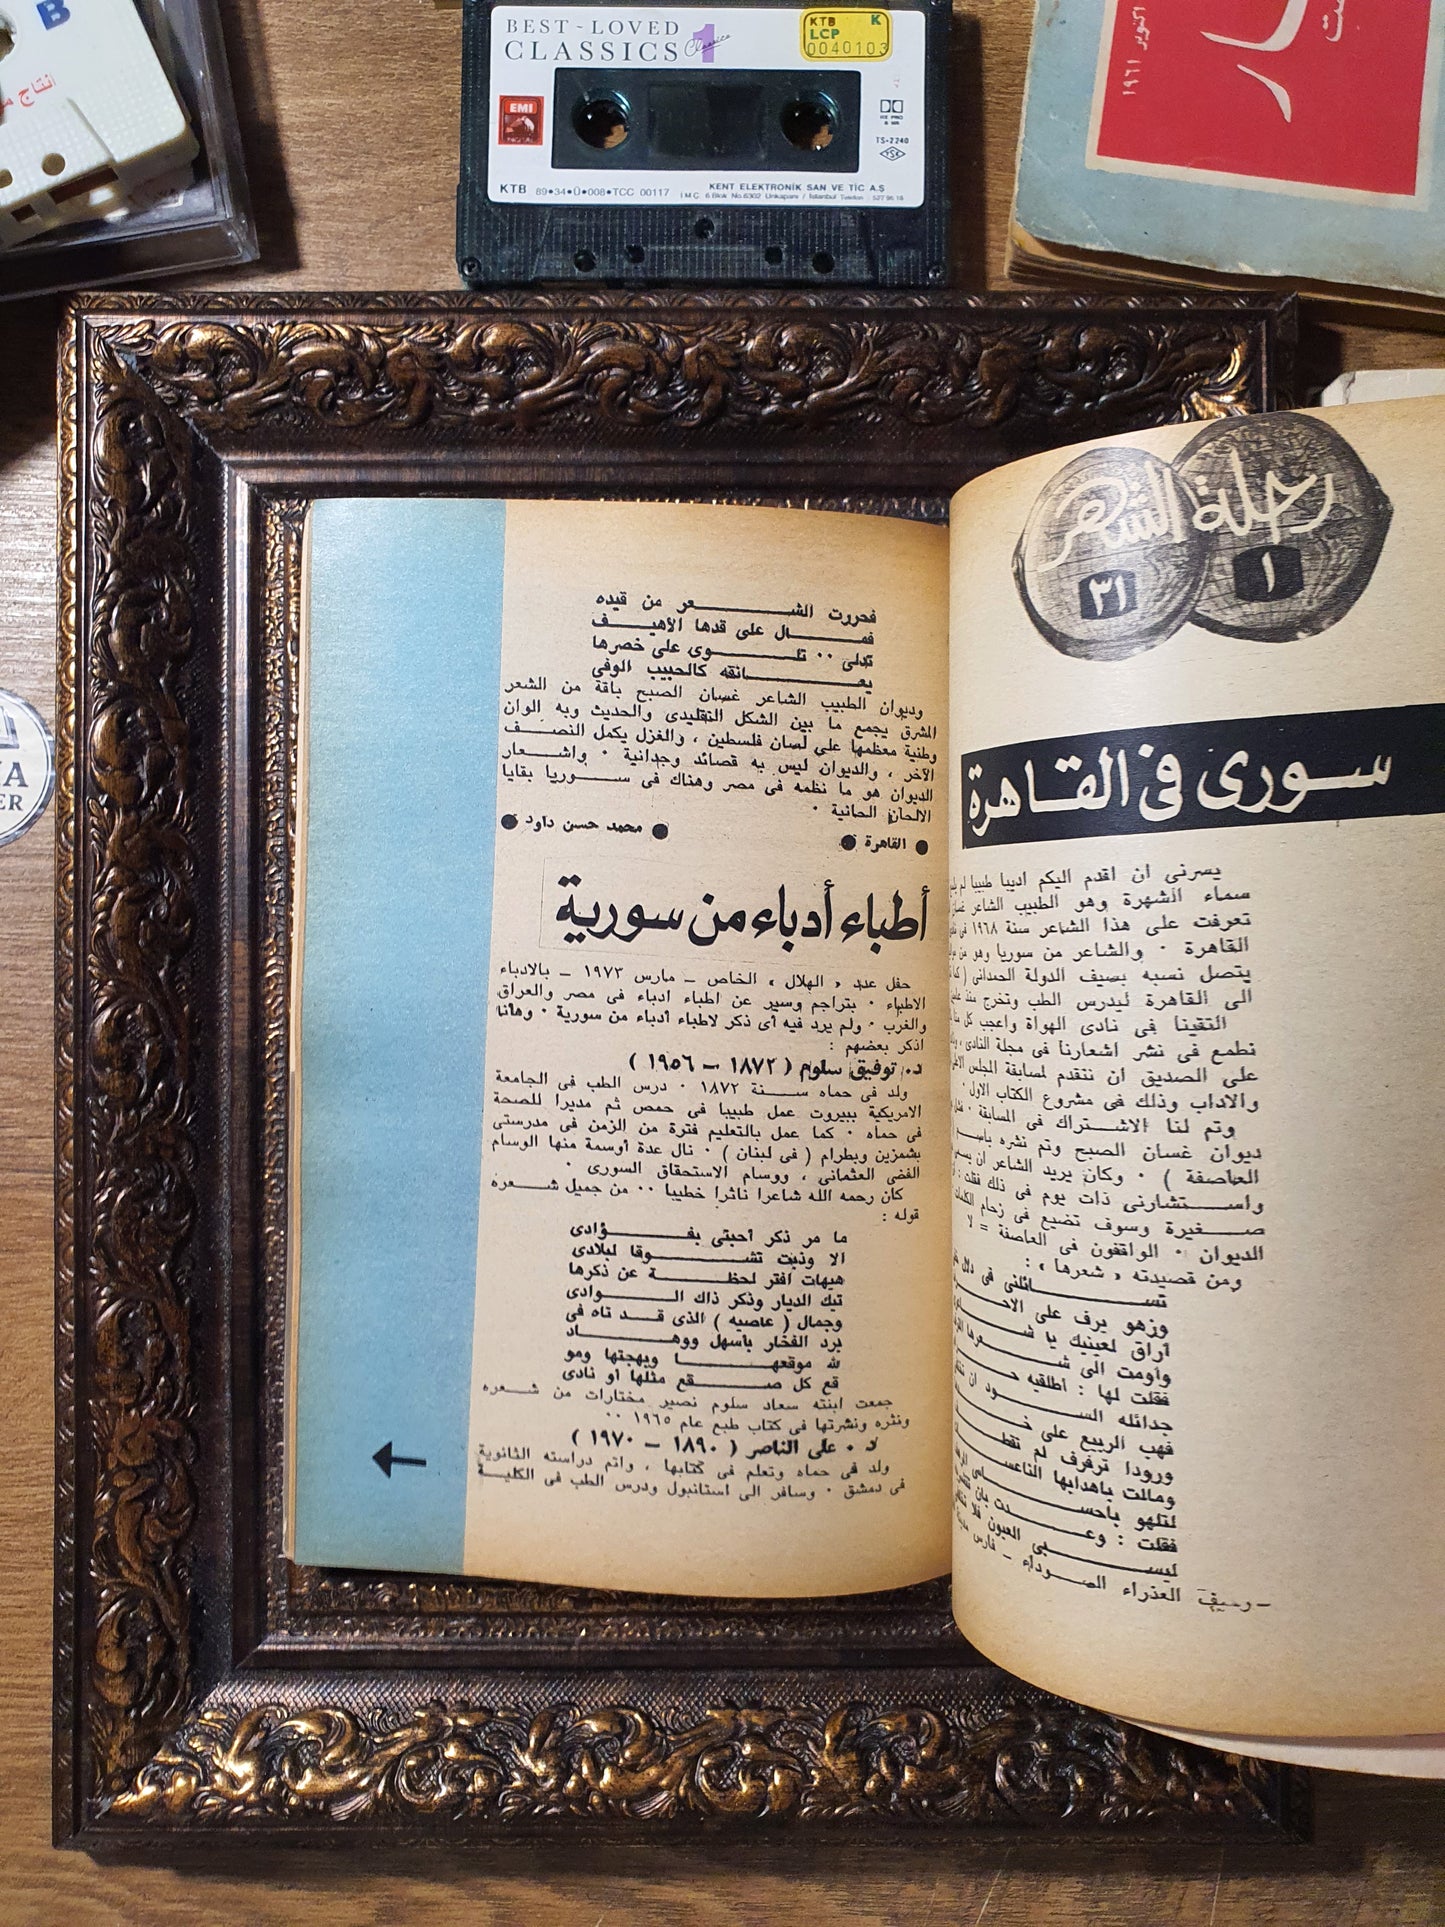 BEST ~ LOVED
CLASSICS 1
Classics
KTB K
LCP
0040103
EMI
TS-2240
TSK
KTB 89•34•Ü•008•TCC 00117
KENT ELEKTRONİK SAN VE TİC A.Ş
İ.M.Ç. 6.Blok No.6302 Unkapanı / İstanbul Telefon : 527 96 16
B
انتاج
اكتوبر ١٩٦١
رحلة الشهر
١
٣١
سورى فى القاهرة
يسرنى ان اقدم اليكم اديبا طبيبا لم
سماء الشهرة وهو الطبيب الشاعر
تعرفت على هذا الشاعر سنة ١٩٦٨ فى
القاهرة ٠ والشاعر من سوريا وهو من
يتصل نسبه بسيف الدولة الحمدانى
الى القاهرة ليدرس الطب وتخرج منذ
التقينا فى نادى الهواة واعجب كل
نطمع فى نشر اشعارنا فى مجلة النادى ،
على الصديق ان نتقدم لمسابقة المجلس
والاداب وذلك فى مشروع الكتاب الاول ٠
وتم لنا الاشتراك فى المسابقة ٠
ديوان غسان الصبح وتم نشره باسم
العاصفة ) ٠ وكان يريد الشاعر ان
واستشارنى ذات يوم فى ذلك فقلت :
صغيرة وسوف تضيع فى زحام الكلمات
الديوان ٠ الواقفون فى العاصفة = لا
ومن قصيدته « شعرها » :
تسائلنى فى دلال
وزهو يرف على
أراق لعينيك يا شعرها
وأومت الى
فقلت لها : أطلقيه
جدائله السود ان
فهب الربيع على
ورودا ترفرف لم
ومالت باهدابها الناعسا
لتلهو باحسا
فقلت : وعدت بان
ليسبى العيون فلا
العذراء السوداء - فارس
فحررت الشعر من قيده
فمال على قدها الأهيف
تدلى ٠٠ تلوى على خصرها
يعانقه كالحبيب الوفى
وديوان الطبيب الشاعر غسان الصبح باقة من الشعر
المشرق يجمع ما بين الشكل التقليدى والحديث وبه الوان
وطنية معظمها على لسان فلسطين ، والغزل يكمل النصف
الآخر ، والديوان ليس به قصائد وجدانية ٠ واشعار
الديوان هو ما نظمه فى مصر وهناك فى سوريا بقايا
الالحان الحانية ٠
● القاهرة ● ● محمد حسن داود ●
أطباء أدباء من سورية
حفل عدد « الهلال » الخاص - مارس ١٩٧٣ - بالادباء
الاطباء ٠ بتراجم وسير عن اطباء ادباء فى مصر والعراق
والغرب ٠ ولم يرد فيه أى ذكر لاطباء أدباء من سورية ٠ وهأنا
اذكر بعضهم :
د٠ توفيق سلوم ( ١٨٧٢ - ١٩٥٦ )
ولد فى حماه سنة ١٨٧٢ ٠ درس الطب فى الجامعة
الامريكية ببيروت عمل طبيبا فى حمص ثم مديرا للصحة
فى حماه ٠ كما عمل بالتعليم فترة من الزمن فى مدرستى
بشمزين وبطرام ( فى لبنان ) ٠ نال عدة أوسمة منها الوسام
الفضى العثمانى ، ووسام الاستحقاق السورى ٠
كان رحمه الله شاعرا ناثرا خطيبا ٠٠ من جميل شعره
قوله :
ما مر ذكر أحبتى بفؤادى
الا وذبت تشوقا لبلادى
هيهات افتر لحظة عن ذكرها
تيك الديار وذكر ذاك الوادى
وجمال ( عاصيه ) الذى قد تاه فى
برد الفخار بأسهل ووهاد
لله موقعها وبهجتها ومو
قع كل صقع مثلها او نادى
جمعت ابنته سعاد سلوم نصير مختارات من شعره
ونثره ونشرتها فى كتاب طبع عام ١٩٦٥ ٠٠
د ٠ على الناصر ( ١٨٩٠ - ١٩٧٠ )
ولد فى حماه وتعلم فى كتابها ، واتم دراسته الثانوية
فى دمشق ٠ وسافر الى استانبول ودرس الطب فى الكلية